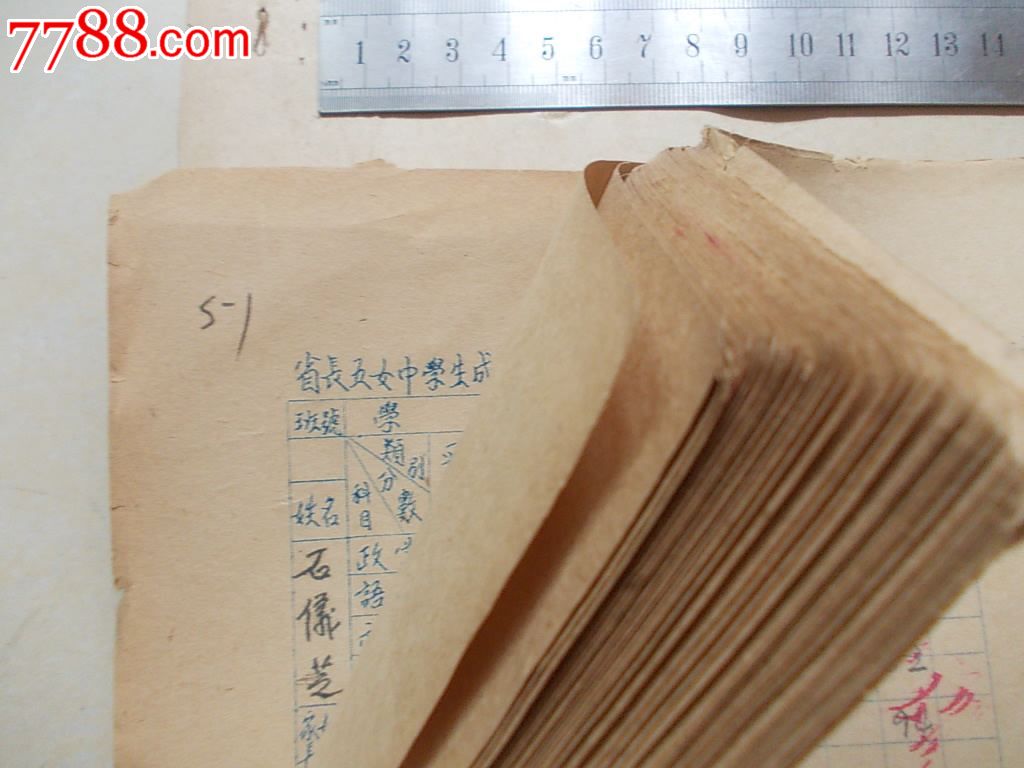 7788.com
1 2 3 4 5 6 7 8 9 10 11 12 13 14
5-1
省長五女中學生成
班號 學
類別
分數
科目
姓名
政
語
石儀芝